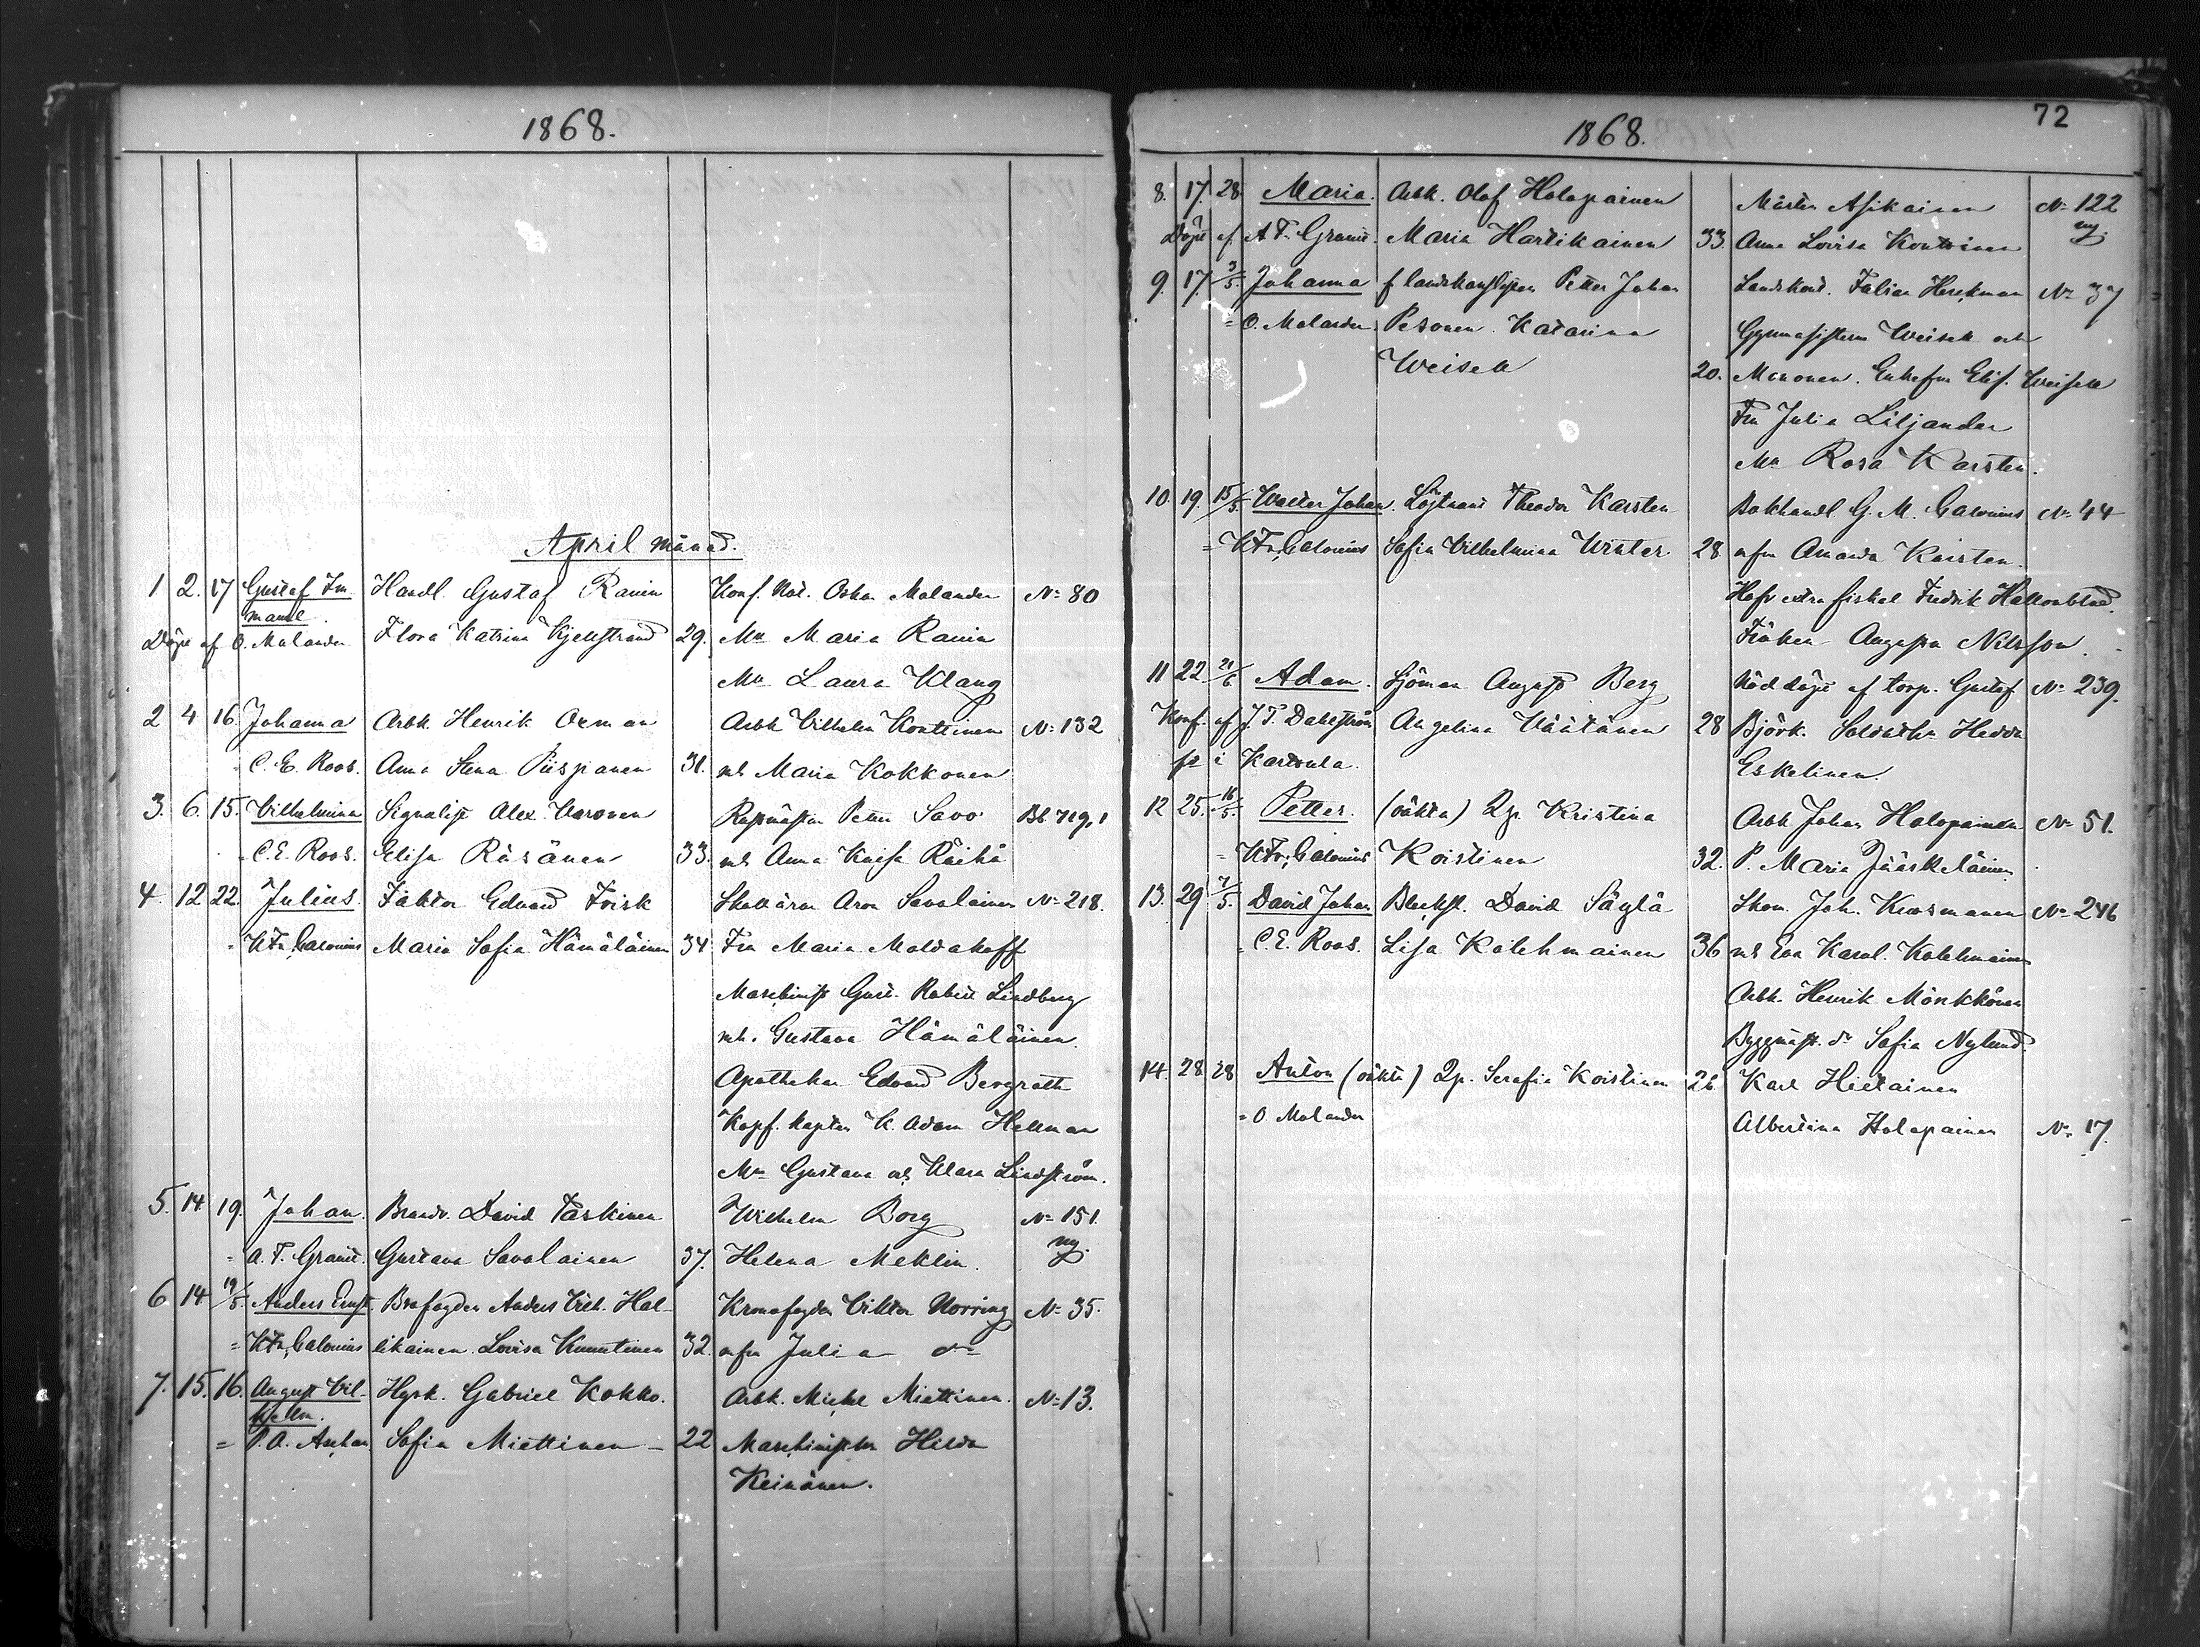 1868.
April månad.
1 2. 17 Gustaf Im- Handl. Gustaf Ranin Konf. Not. Oskar Molander No 80
manl.
Döpt af O. Molander Flora Katrina Kjellstrand 29. Mll Maria Ranin
Mll Laura Klang
2 4 16. Johanna Arbk. Henrik Oxman Arbk Vilhelm Konttinen No 132
C. E. Roos. Anna Stina Piispanen 31. och Maria Kokkonen
3. 6. 15. Vilhelmina Signalist Alex. Varonen Petter Savo Bl. 719,1
C. E. Roos. Elisa Räsänen 33. och Anna Kaisa Räihä
4. 12 22. Julius. Faktor Edvard Frisk Aron Savolainen No 218.
K. Fr. Calonius Maria Sofia Hämäläinen 34 Fru Maria Moldakoff
Maschinist Gust. Robert Lindberg
och Gustava Hämäläinen.
Apothekar Edvard Bergroth
Kopf. Kapten K. Adam Hellman
Mll Gustava och Klara Lindström.
5. 14 19. Johan. Brandv. David Taskinen Wilhelm Borg No 151.
ny.
A. F. Granit. Gustava Savolainen 37. Helena Meklin.
6 14 19/5. Anders Ernst. Brofogden Anders Vilh. Hal- Kronofogden Viktor Norring No 35.
K. Fr. Calonius likainen. Lovisa Kumtinen 32. Julia
7. 15. 16. August Vil- Hyrk. Gabriel Kokko. Arbk. Mickel Miettinen. No 13.
helm.
P. A. Aschan Sofia Miettinen 22 Hilda
Keinänen.
1868.
72
8. 17. 28 Maria. Arbk. Olof Holopainen Mårten Asikainen No 122
ny.
Döpt af A. F. Granit. Maria Hartikainen 33 Anna Lovisa Konttinen
9. 17. 3/5. Johanna f. landskanslisten Petter Johan Landskont. Fabian Herckman No 37
O. Molander. Pesonen. Katarina Gymnasisterna Weisell och
Weisell 20. Mononen. Enkefru Elis. Weisell
Fru Julia Liljander
Mll Rosa Karsten.
10. 19. 15/5. Walter Johan. Löjtnant Theodor Karsten Bokhandl. G. M. Calonius No 44
K. Fr. Calonius Sofia Vilhelmina Winter 28 Amanda Karsten.
Hofr. extra fiskal Fredrik Hallonblad.
Fröken Augusta Nilsson.
11 22 21/6 Adam. Sjöman August Berg Nöddöpt af torp. Gustaf No 239.
Konf. af J. F. Dahlström Angelina Väätänen 28 Björk. Hedda
i Karttula. Eskelinen.
12 25. 16/5. Petter. (oäkta) Qp. Kristina Arbk Johan Holopainen No 51.
K. Fr. Calonius Koistinen 32. P. Maria Jääskeläinen
13. 29 7/5. David Johan Blecksl. David Säylä Skom. Joh. Kuosmanen No 246
C. E. Roos. Lisa Kolehmainen 36 och Eva Karol. Kolehmainen
Arbk. Henrik Mönkkönen
Byggmäst. dr Sofia Nylund.
14. 28 28 Anton (oäkta) Qp. Serafia Koistinen 26 Karl Hietainen
O Molander
Albertina Holopainen No 17.